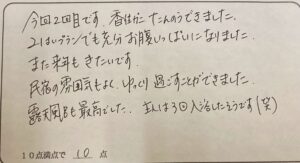 今回2回目です。香住かにたんのうできました。
2はいプランでも充分お腹いっぱいになりました。
また来年もきたいです。
民宿の雰囲気もよく、ゆっくり過ごすことができました。
露天風呂も最高でした。主人は3回入浴したそうです(笑)
10点満点で 10 点